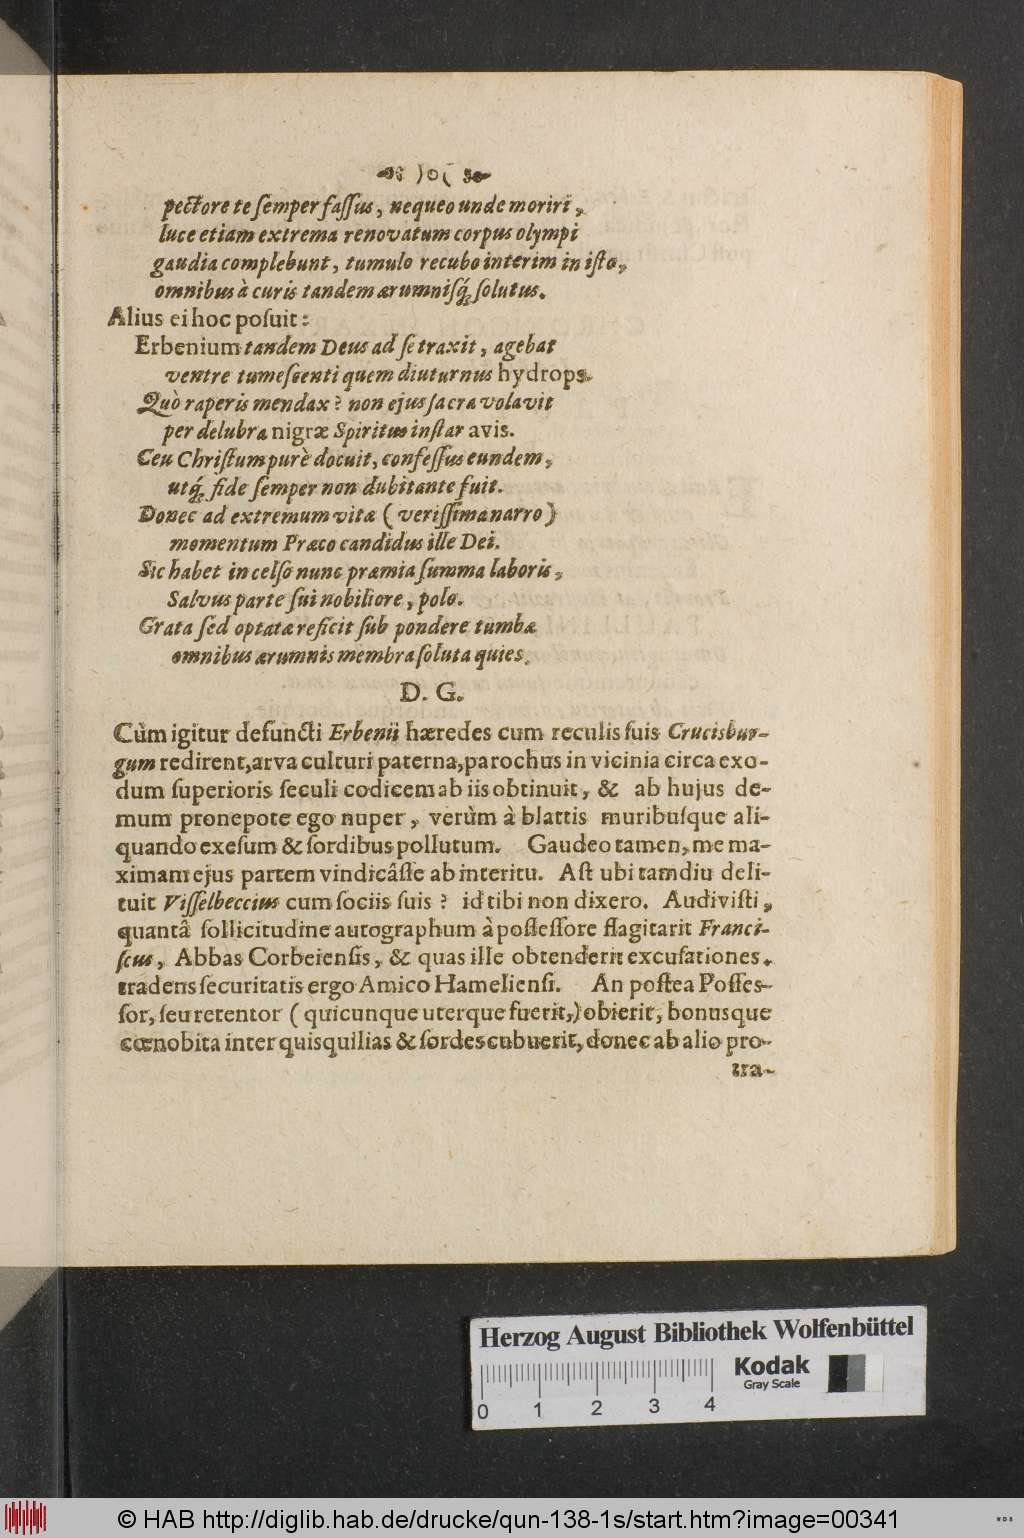 )o(
pectore te ſemper faſſus, nequeo unde moriri,
luce etiam extrema renovatum corpus olympi
gaudia complebunt, tumulo recubo interim in iſto,
omnibus à curis tandem ærumniſq́; ſolutus.
Alius ei hoc poſuit:
Erbenium tandem Deus ad ſe traxit, agebat
ventre tumeſcenti quem diuturnus hydrops.
Quò raperis mendax? non ejus ſacra volavit
per delubra nigræ Spiritus inſtar avis.
Ceu Chriſtum purè docuit, confeſſus eundem,
utq́; fide ſemper non dubitante fuit.
Donec ad extremum vitæ (veriſſima narro)
momentum Præco candidus ille Dei.
Sic habet in celſo nunc præmia ſumma laboris,
Salvus parte ſui nobiliore, polo.
Grata ſed optatæ reficit ſub pondere tumbæ
omnibus ærumnis membra ſoluta quies.
D. G.
Cùm igitur defuncti Erbenii hæredes cum reculis ſuis Crucisbur-
gum redirent, arva culturi paterna, parochus in vicinia circa exo-
dum ſuperioris ſeculi codicem ab iis obtinuit, & ab hujus de-
mum pronepote ego nuper, verùm à blattis muribuſque ali-
quando exeſum & ſordibus pollutum. Gaudeo tamen, me ma-
ximam ejus partem vindicâſſe ab interitu. Aſt ubi tamdiu deli-
tuit Viſſelbeccius cum ſociis ſuis? id tibi non dixero. Audiviſti,
quantâ ſollicitudine autographum à poſſeſſore flagitarit Franci-
ſcus, Abbas Corbeienſis, & quas ille obtenderit excuſationes.
tradens ſecuritatis ergo Amico Hamelienſi. An poſtea Poſſeſ-
ſor, ſeu retentor (quicunque uterque fuerit,) obierit, bonusque
cœnobita inter quisquilias & ſordes cubuerit, donec ab alio pro-
tra-
Herzog August Bibliothek Wolfenbüttel
Kodak
Gray Scale
0 1 2 3 4
© HAB http://diglib.hab.de/drucke/qun-138-1s/start.htm?image=00341